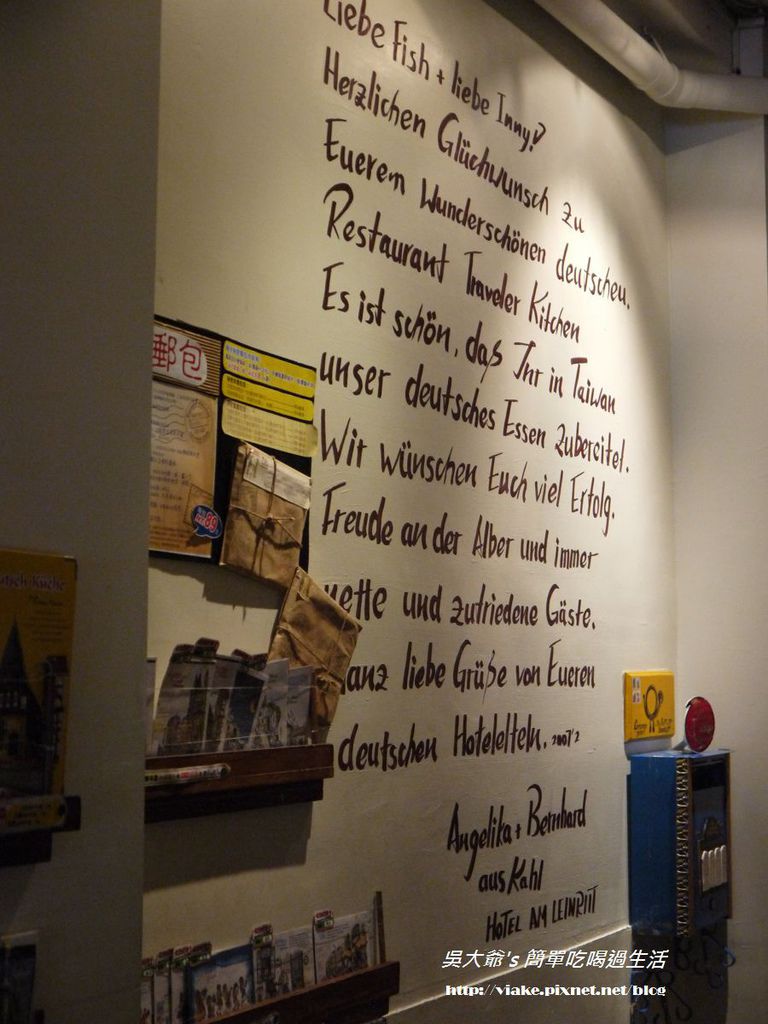 Liebe Fish + liebe Inny!
Herzlichen Glüchwunsch zu
Euerem Wunderschönen deutscheu.
Restaurant Traveler Kitchen
Es ist schön, daß Ihr in Taiwan
unser deutsches Essen Zubereitet.
Wir wünschen Euch viel Erfolg.
Freude an der Alber und immer
nette und zufriedene Gäste.
anz liebe Grüße von Eueren
deutschen Hotelelteln. 2007/2
Angelika + Bernhard
aus Kahl
HOTEL AM LEINRIIT
郵包
89
utsch Küche
吳大爺's 簡單吃喝過生活
http://viake.pixnet.net/blog